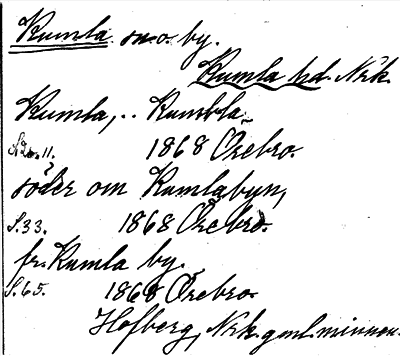 Kumla sn. o. by.
Kumla hd. Nrk.
Kumla, .. Kumbla
S. 11. 1868 Örebro.
söder om Kumlabyn,
S. 33. 1868 Örebro.
fr. Kumla by.
S. 65. 1868 Örebro.
Hofberg, Nrk. gml. minnen.